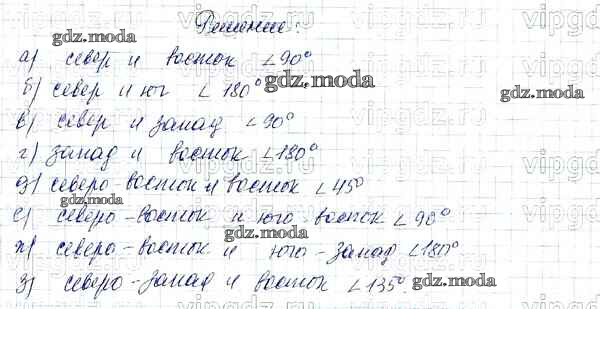 Решение:
gdz.moda
а) север и восток ∠90°
б) север и юг ∠180°
gdz.moda
gdz.moda
в) север и запад ∠90°
г) запад и восток ∠180°
д) северо-восток и восток ∠45°
gdz.moda
е) северо-восток и юго-восток ∠90°
gdz.moda
ж) северо-восток и юго-запад ∠180°
з) северо-запад и восток ∠135°.
gdz.moda